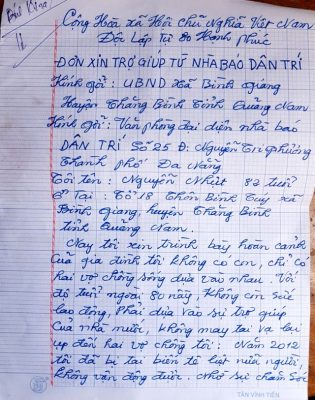 Cộng Hòa xã Hội Chủ Nghĩa Việt Nam
Độc Lập Tự Do Hạnh Phúc
ĐƠN XIN TRỢ GIÚP TỪ NHÀ BÁO DÂN TRÍ
Kính gởi: UBND xã Bình Giang
Huyện Thăng Bình Tỉnh Quảng Nam
Kính gởi: Văn phòng đại diện nhà báo
DÂN TRÍ Số 25 Đ: Nguyễn Tri Phương
Thành phố Đà Nẵng
Tôi tên: Nguyễn Nhựt 82 tuổi
Ở Tại: Tổ 18 Thôn Bình Tuý xã
Bình Giang, huyện Thăng Bình
tỉnh Quảng Nam.
Nay tôi xin trình bày hoàn cảnh
Của gia đình tôi không có con, chỉ có
hai vợ chồng sống dựa vào nhau. Với
độ tuổi ngoài 80 này, không còn sức
lao động, Phải dựa vào sự trợ giúp
Của nhà nước, không may tai vạ lại
ụp đến hai vợ chồng tôi: Năm 2012
tôi đã bị tai biến tê liệt nửa người,
không vận động được. Nhờ sự chăm sóc
TÂN VĨNH TIẾN